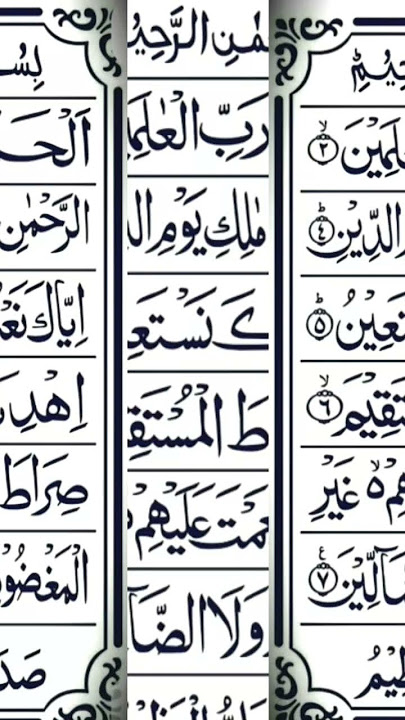 بِسْـ
اَلْحَـ
الرَّحْمٰنِ
اِيَّاكَ نَعْـ
اِهْدِ
صِرَاطَ
الْمَغْضُو
صَدَ
ـمٰنِ الرَّحِيْـ
رَبِّ الْعٰلَمِـ
مٰلِكِ يَوْمِ الـ
ـكَ نَسْتَعِـ
طَ الْمُسْتَقِـ
ـعَمْتَ عَلَيْهِمْ
وَلَا الضَّآ
ـحِيْمِ
ـلَمِيْنَ ۙ﴿٢﴾
الدِّيْنِ ؕ﴿٤﴾
ـتَعِيْنُ ؕ﴿٥﴾
ـتَقِيْمَ ۙ﴿٦﴾
ـهِمْ ۙ۬ ە غَيْرِ
ـآلِّيْنَ ﴿٧﴾ ع
ـظِيْمُ